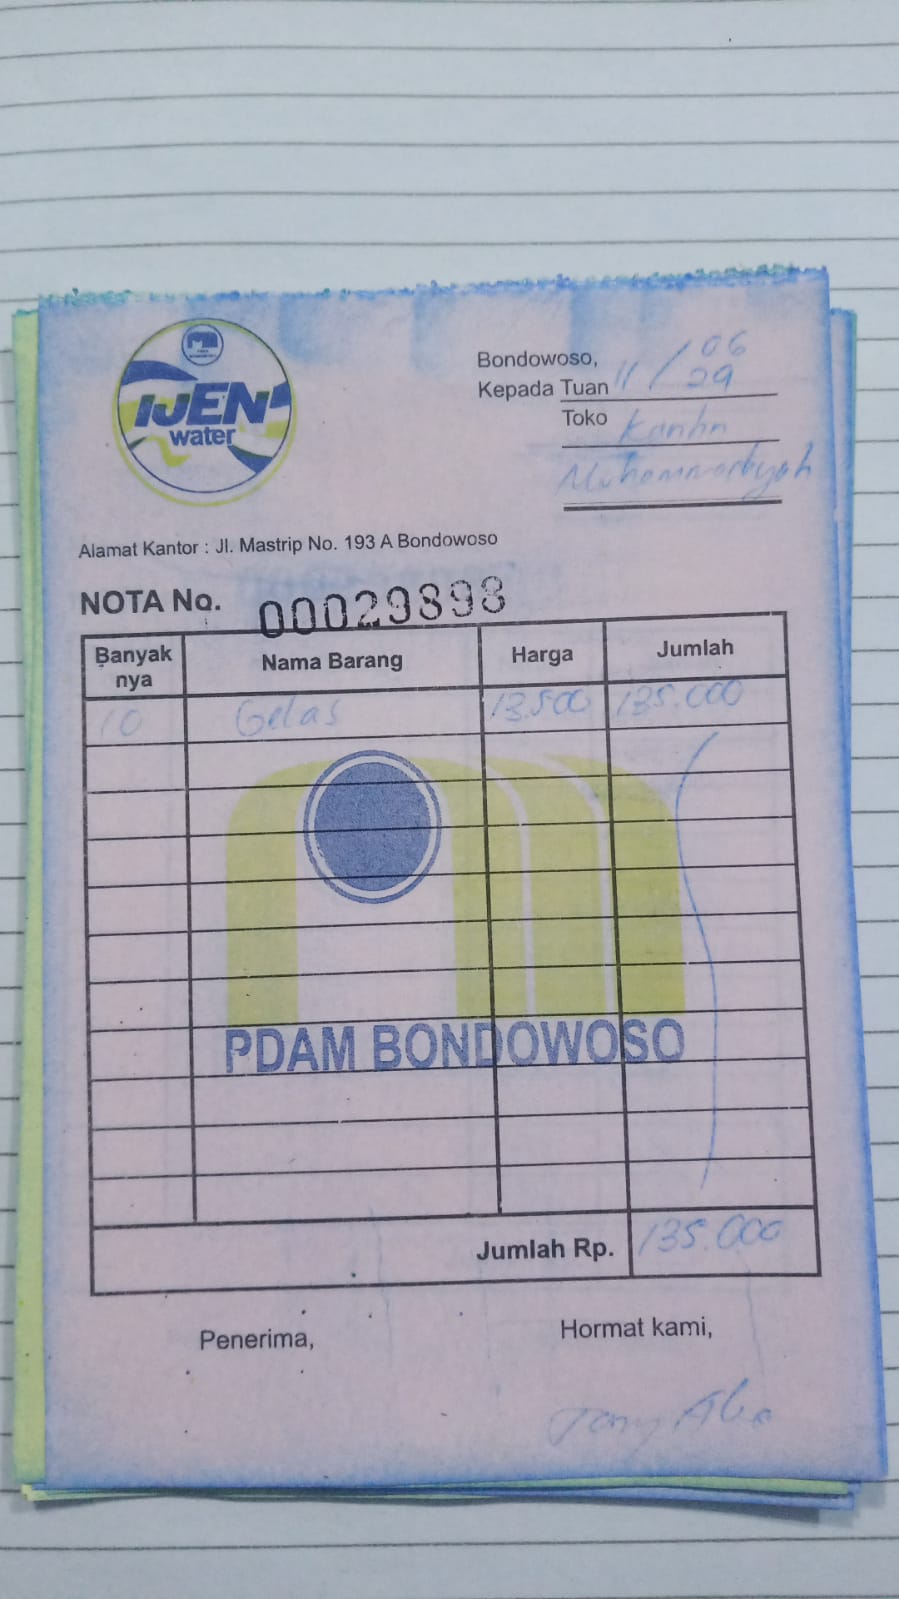 IJEN
water
Bondowoso, 11/06
Kepada Tuan 29
Toko Kantin
Muhammadiyah
Alamat Kantor : Jl. Mastrip No. 193 A Bondowoso
NOTA No. 00029898
Banyak nya Nama Barang Harga Jumlah
10 Gelas 13.500 135.000
PDAM BONDOWOSO
Jumlah Rp. 135.000
Penerima, Hormat kami,